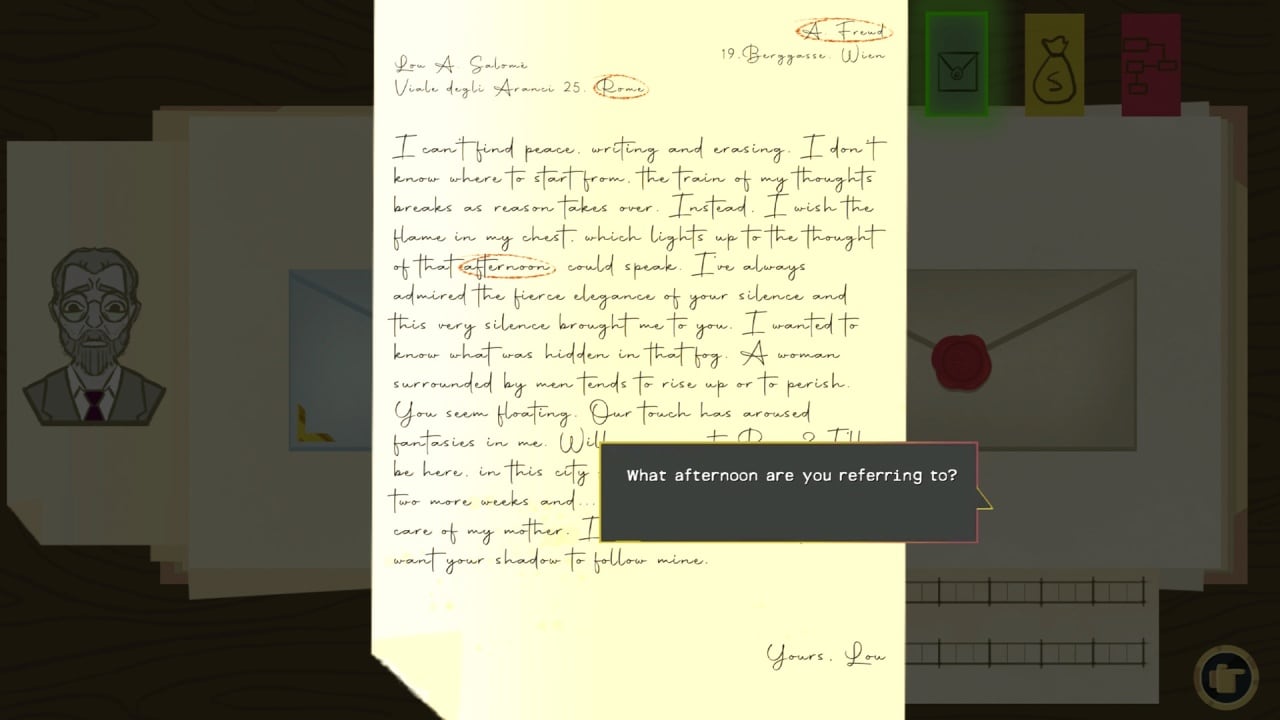 A. Freud
19.Berggasse. Wien
Lou A. Salomè
Viale degli Aranci 25. Rome
I can't find peace. writing and erasing. I don't
know where to start from. the train of my thoughts
breaks as reason takes over. Instead. I wish the
flame in my chest. which lights up to the thought
of that afternoon could speak. I've always
admired the fierce elegance of your silence and
this very silence brought me to you. I wanted to
know what was hidden in that fog. A woman
surrounded by men tends to rise up or to perish.
You seem floating. Our touch has aroused
fantasies in me.
be here. in this city
two more weeks and...
care of my mother. I
want your shadow to follow mine.
Yours. Lou
What afternoon are you referring to?